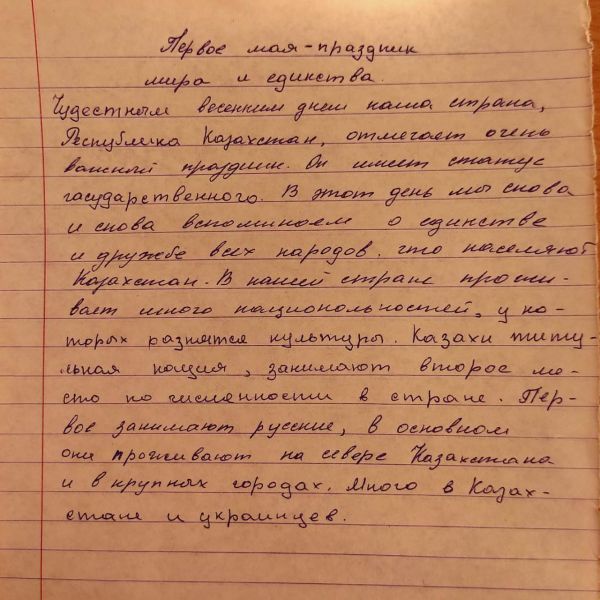 Первое мая-праздник
мира и единства.
Чудестным весенним днем наша страна,
Республика Казахстан, отмечает очень
важный праздник. Он имеет статус
гасударственного. В этот день мы снова
и снова вспоминаем о единстве
и дружбе всех народов, что населяют
Казахстан. В нашей стране прожи-
вает много национольностей, у ко-
торых разнятся культуры. Казахи титу-
льная нация, занимают второе ме-
сто по численности в стране. Пер-
вое занимают русские, в основном
они проживают на севере Казахстана
и в крупных городах. Много в Казах-
стане и украинцев.